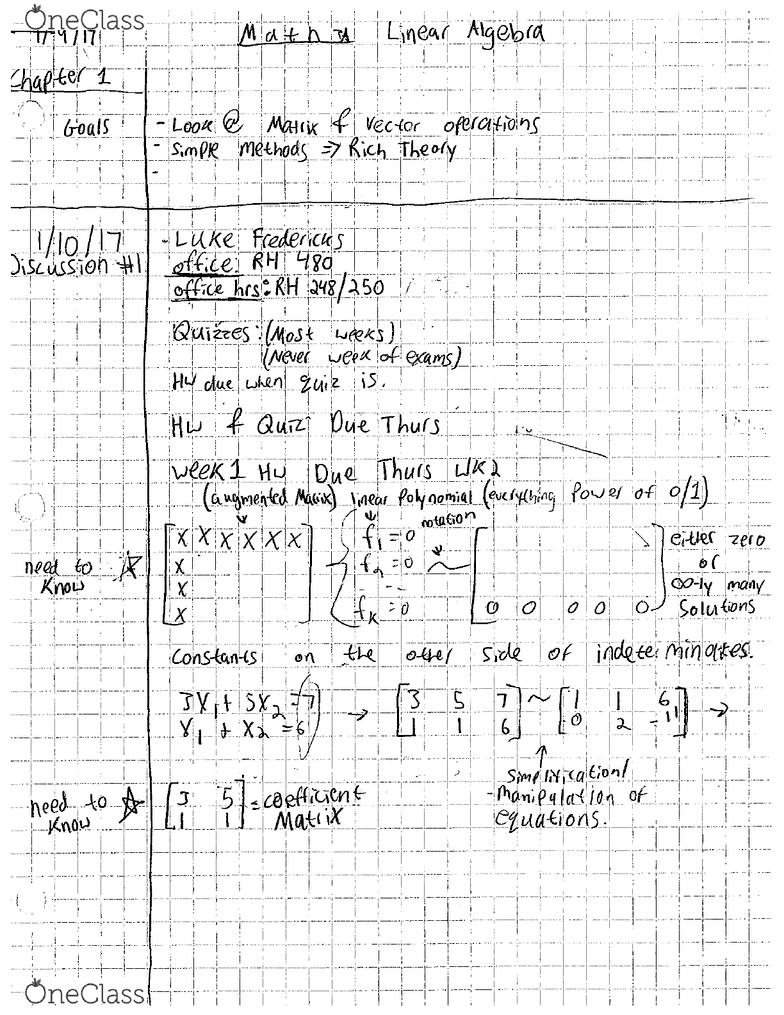 OneClass
Math Linear Algebra
Chapter 1
Goals
- Look @ Matrix & Vector operations
- Simple Methods ⇒ Rich Theory
-
1/10/17
Discussion #1
- Luke Fredericks
office: RH 480
office hrs: RH 248/250
Quizzes: (Most weeks)
(Never week of exams)
HW due when quiz is.
HW & Quiz: Due Thurs
Week 1 HW Due Thurs WK2
(augmented Matrix) linear Polynomial (everything Power of 0/1)
need to Know
[X X X X X X
X
X
X]
{ f1 = 0
f2 = 0
- - -
fk = 0
notation
~
[0 0 0 0 0]
either zero
or
∞-ly many
Solutions
Constants on the other side of indeterminates.
3X1 + 5X2 = 7
X1 + X2 = 6
→ [3 5 7
1 1 6] ~ [1 1 6
0 2 -11] →
Simplification/
-manipulation of
equations.
need to Know
[3 5
1 1] = coefficient
Matrix
OneClass